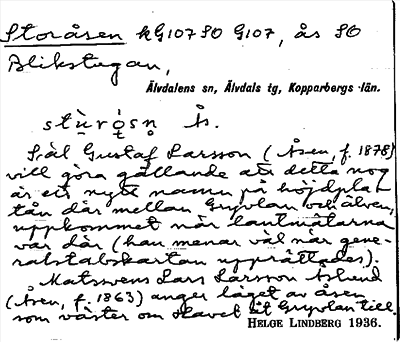 Storåsen kG107SO G107, ås SO
Blikstugan,
Älvdalens sn, Älvdals tg, Kopparbergs län.
Ås.
Själ Gustaf Larsson (Åsen, f. 1878)
vill göra gällande att detta nog
är ett nytt namn på höjdpla-
tån där mellan Gryvlan och älven,
uppkommet när lantmätarna
var där (han menar väl när gene-
ralstabskartan upprättades).
Matsvens Lars Larsson Åslund
(Åsen, f. 1863) anger läget av åsen
som väster om Slavet åt Gryvlan till.
HELGE LINDBERG 1936.